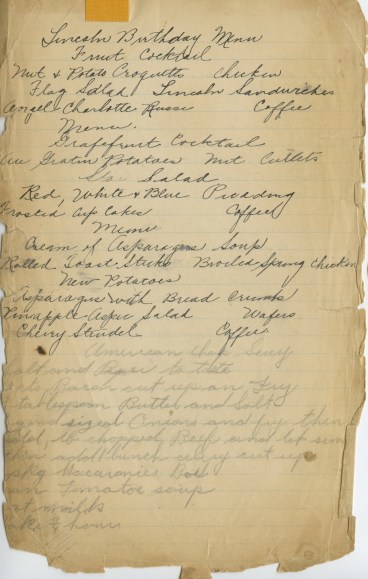 Lincoln Birthday Menu
Fruit Cocktail
Nut & Potato Croquetts Chicken
Flag Salad Lincoln Sandwiches
Angel Charlotte Russe Coffee
Menu.
Grapefruit Cocktail
Au Gratin Potatoes Nut Cutlets
Star Salad
Red, White & Blue Pudding
Frosted Cup Cakes Coffee
Menu
Cream of Asparagus Soup
Rolled Toast Sticks Broiled Spring Chicken
New Potatoes
Asparagus with Bread Crumbs
Pineapple Aspic Salad Wafers
Cherry Strudel Coffee
American Chop Suey
salt and to taste
cut up an Fry
tablespoon Butter and Salt
good sized Onions and fry then
add lb chopped Beef and let
then add bunch cut up
pkg Macaronie
can Tomatoe soup
hour